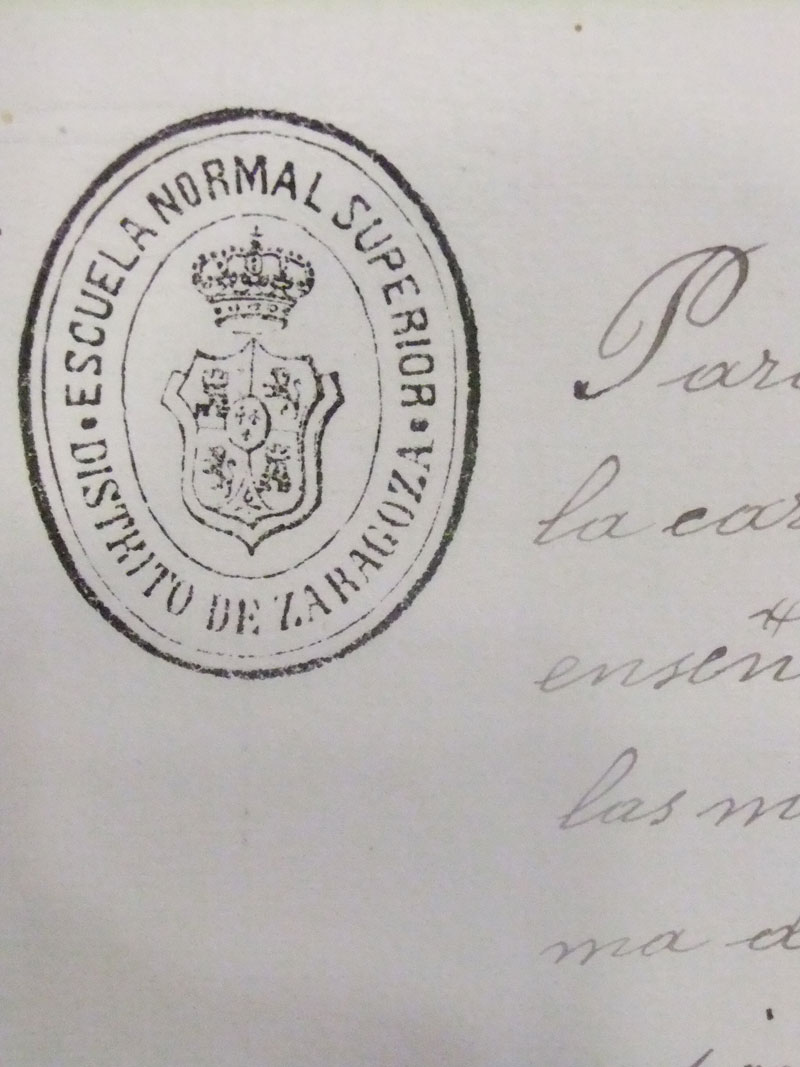 ESCUELA NORMAL SUPERIOR
DISTRITO DE ZARAGOZA
Para
la car
enseñ
las m
ma d